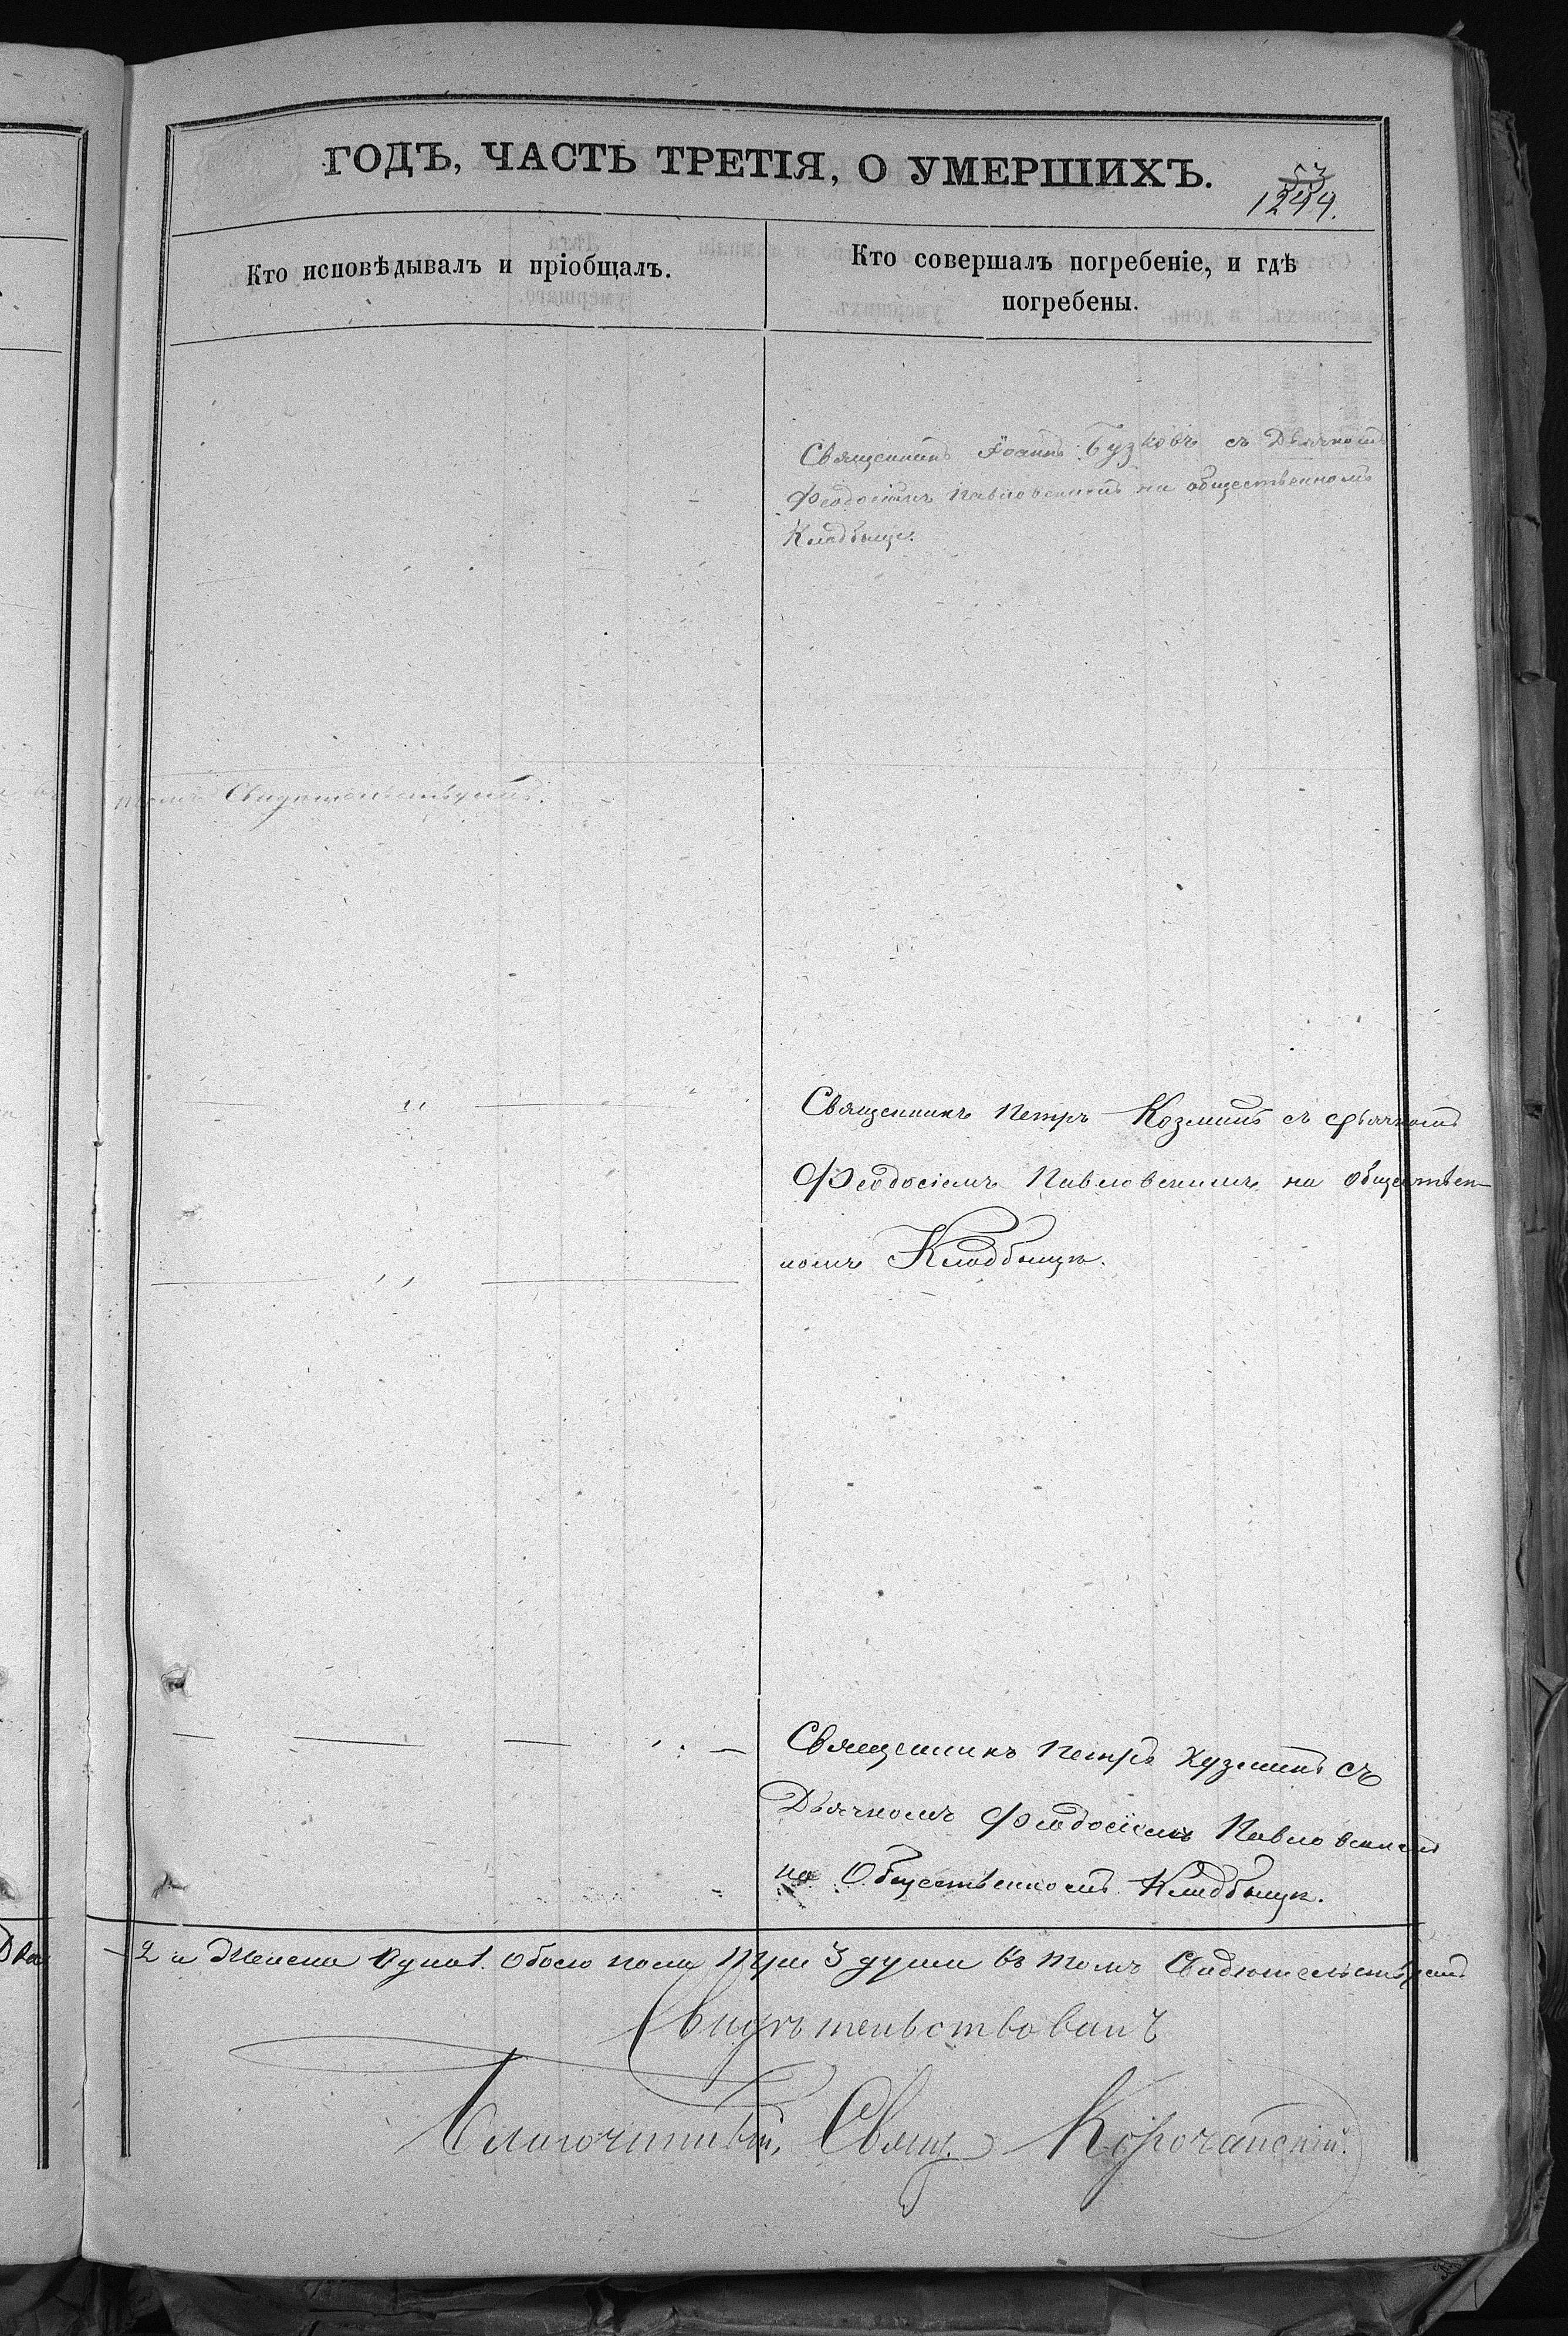 ГОДЪ, ЧАСТЬ ТРЕТІЯ, О УМЕРШИХЪ.
53
1244.
Кто исповѣдывалъ и пріобщалъ.
Кто совершалъ погребеніе, и гдѣ
погребены.
Священникъ Іоаннъ Бузковъ съ Дьячкомъ
Феодосіемъ Павловскимъ на общественномъ
Кладбище.
томъ Свидетельствуютъ.
Священникъ Петръ Козминъ съ дьячкомъ
Феодосіемъ Павловскимъ на обществен-
номъ Кладбищѣ.
Священникъ Петръ Кузминъ съ
Дьячкомъ Феодосіемъ Павловскимъ
на Общественномъ Кладбищѣ.
Два - 2 и Женска Одна 1. Обоего пола три 3 души въ томъ Свидѣтельствуютъ
Свидѣтельствовалъ
Благочинный, Свящ. Корочанскій.